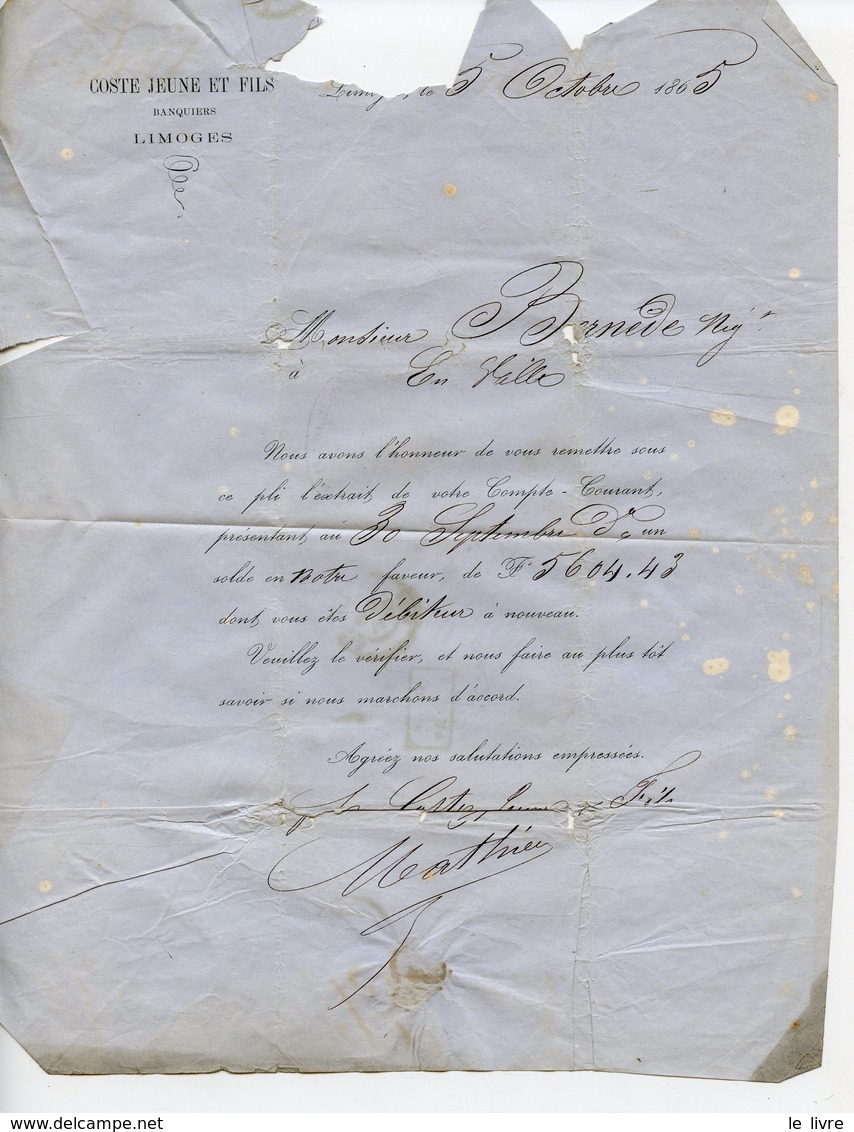 COSTE JEUNE ET FILS
BANQUIERS
LIMOGES
le 5 Octobre 1865
Monsieur Bernède Nég.t
à En Ville
Nous avons l'honneur de vous remettre sous
ce pli l'extrait de votre Compte-Courant,
présentant au 30 Septembre D.r un
solde en notre faveur, de F.s 5604.43
dont vous êtes Débiteur à nouveau.
Veuillez le vérifier, et nous faire au plus tôt
savoir si nous marchons d'accord.
Agréez nos salutations empressées.
Coste Jeune & Fils
Mathieu
le livre